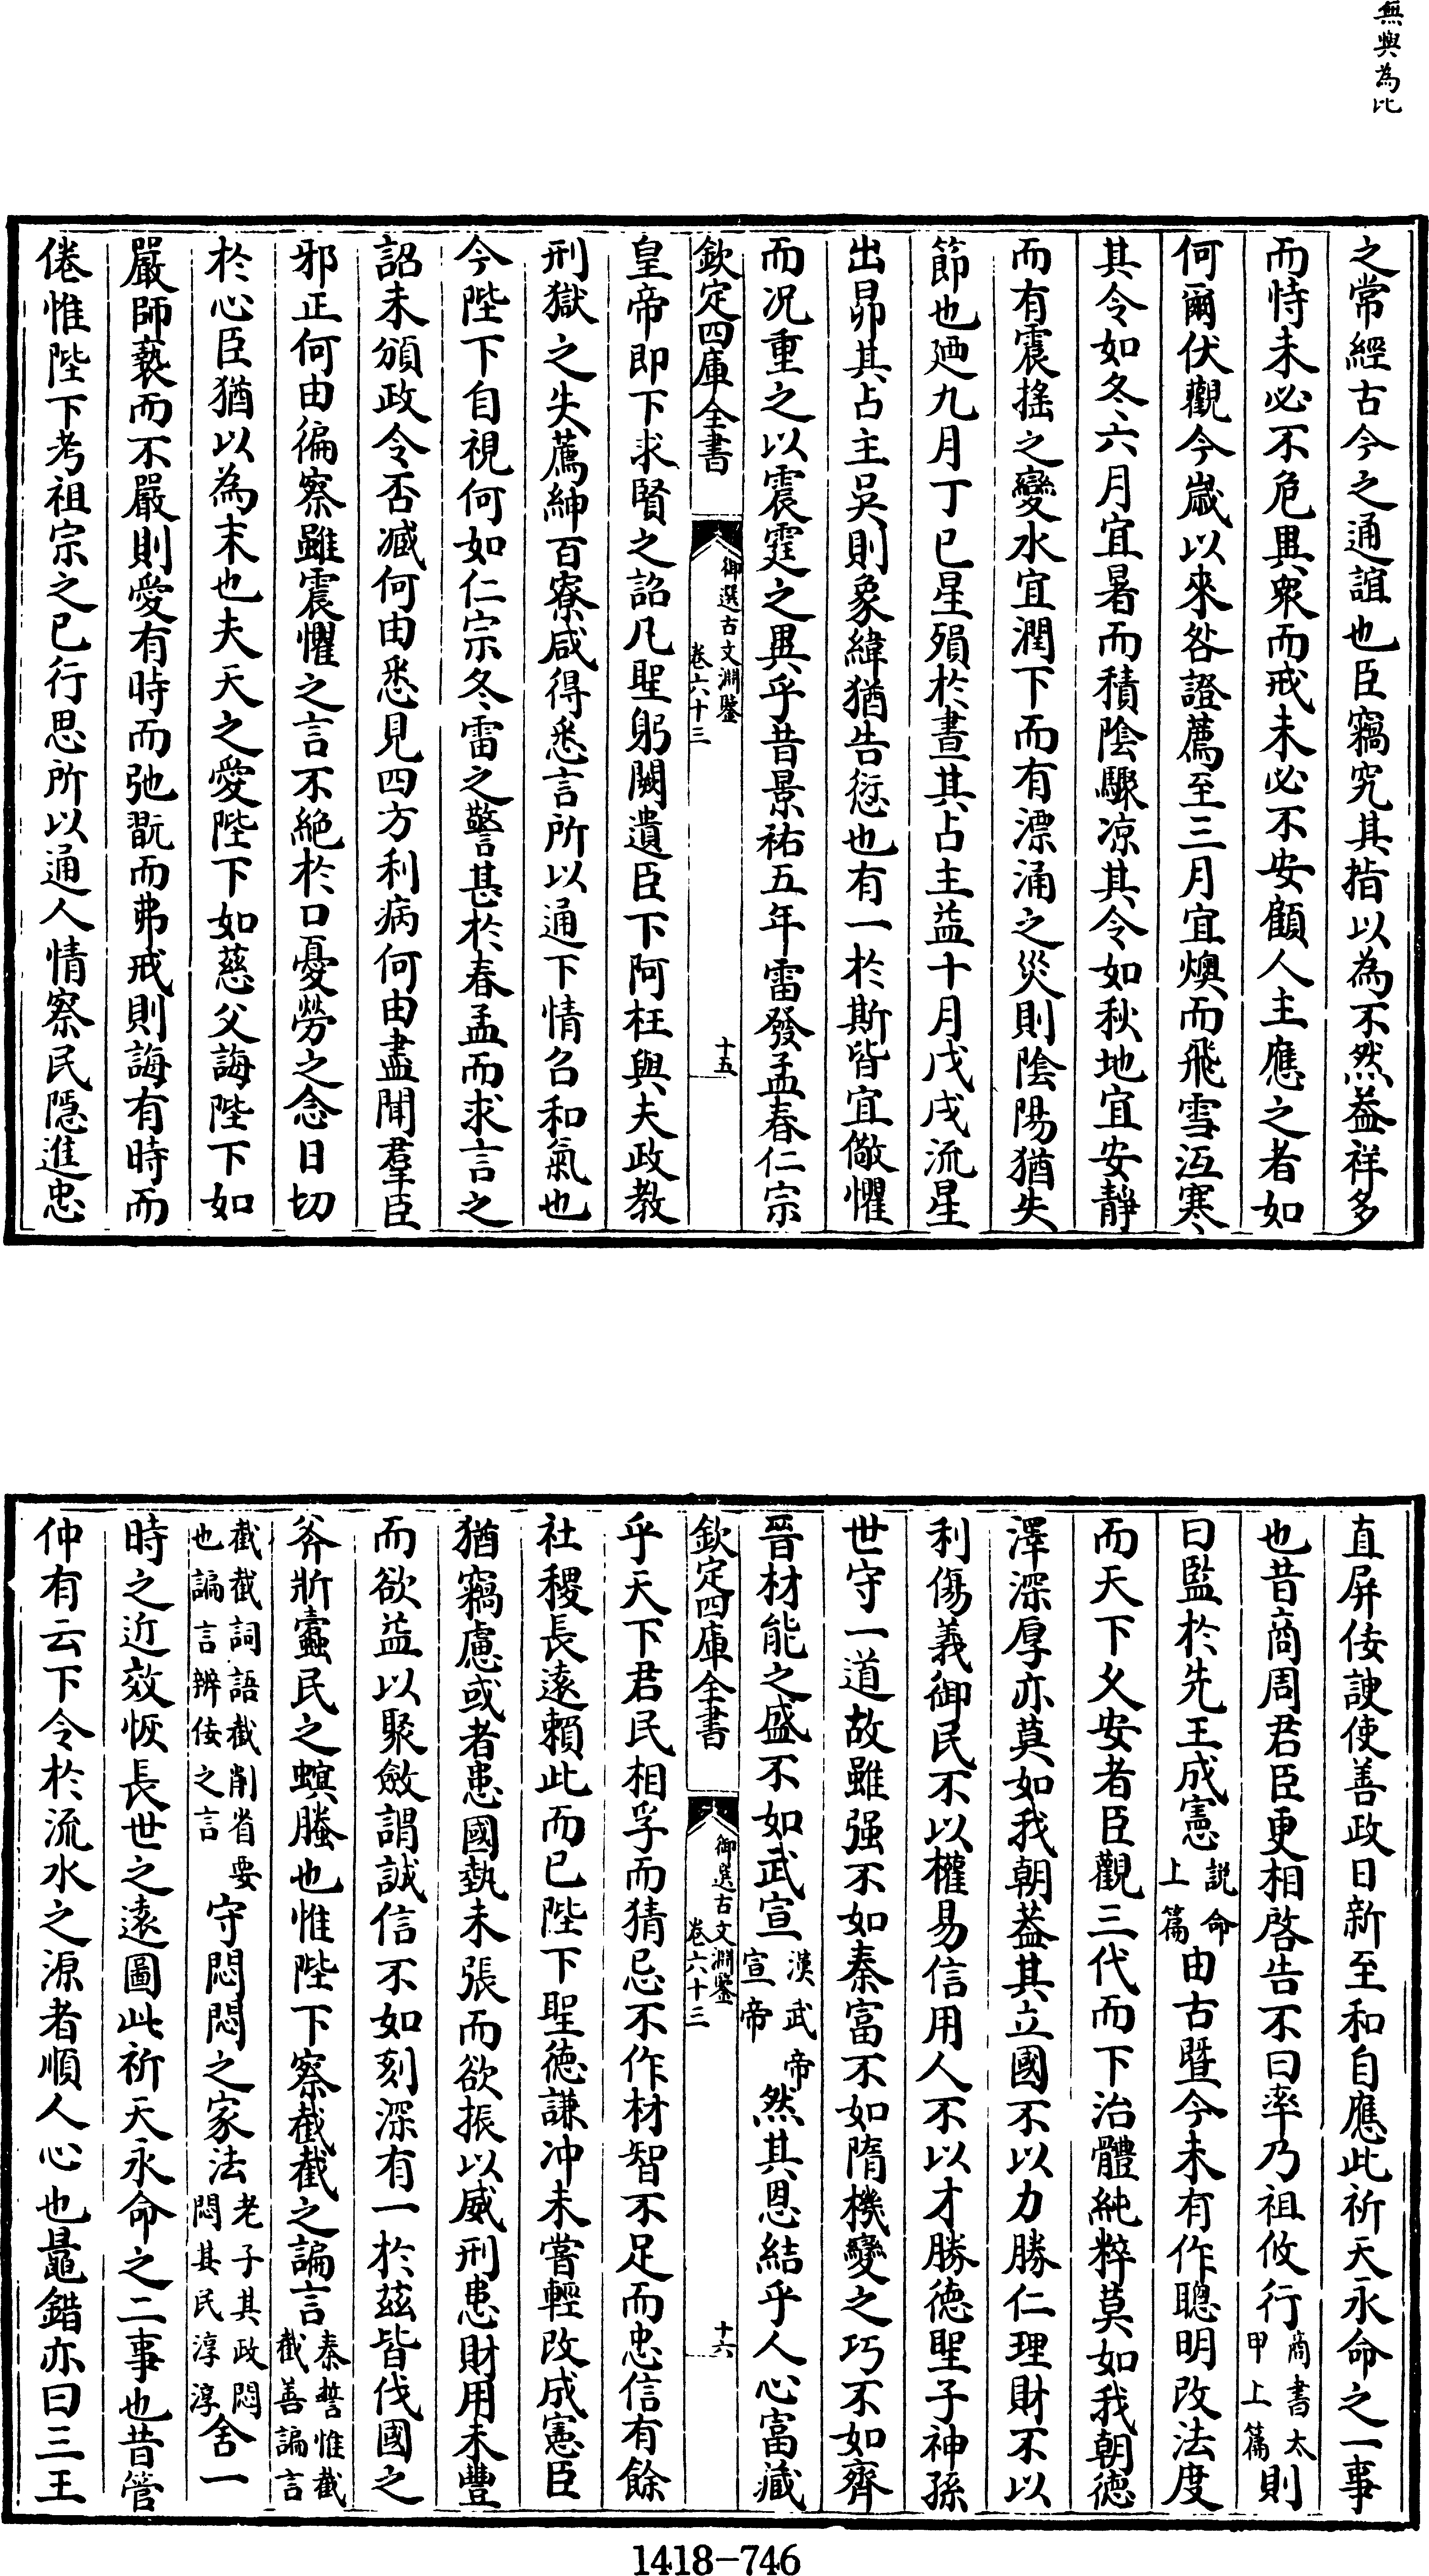 無與為比
之常經古今之通誼也臣竊究其指以為不然葢祥多
而恃未必不危異衆而戒未必不安顧人主應之者如
何爾伏觀今歳以來咎證薦至三月宜燠而飛雪沍寒
其令如冬六月宜暑而積陰驟凉其令如秋地宜安靜
而有震搖之變水宜潤下而有漂涌之災則陰陽猶失
節也廼九月丁巳星殞於晝其占主益十月戊戌流星
出昴其占主吳則象緯猶告愆也有一於斯皆宜儆懼
而况重之以震霆之異乎昔景祐五年雷發孟春仁宗
欽定四庫全書
御選古文淵鑒
卷六十三
十五
皇帝即下求賢之詔凡聖躬闕遺臣下阿枉與夫政教
刑獄之失薦紳百寮咸得悉言所以通下情召和氣也
今陛下自視何如仁宗冬雷之警甚於春孟而求言之
詔未頒政令否臧何由悉見四方利病何由盡聞羣臣
邪正何由徧察雖震懼之言不絶於口憂勞之念日切
於心臣猶以為末也夫天之愛陛下如慈父誨陛下如
嚴師褻而不嚴則愛有時而弛翫而弗戒則誨有時而
倦惟陛下考祖宗之已行思所以通人情察民隱進忠
直屏佞諛使善政日新至和自應此祈天永命之一事
也昔商周君臣更相啓告不曰率乃祖攸行商書太甲上篇則
曰監於先王成憲說命上篇由古暨今未有作聰明改法度
而天下乂安者臣觀三代而下治體純粹莫如我朝德
澤深厚亦莫如我朝葢其立國不以力勝仁理財不以
利傷義御民不以權易信用人不以才勝德聖子神孫
世守一道故雖强不如秦富不如隋機變之巧不如齊
晉材能之盛不如武宣漢武帝宣帝然其恩結乎人心富藏
欽定四庫全書
御選古文淵鑒
卷六十三
十六
乎天下君民相孚而猜忌不作材智不足而忠信有餘
社稷長遠賴此而已陛下聖德謙冲未嘗輕改成憲臣
猶竊慮或者患國埶未張而欲振以威刑患財用未豐
而欲益以聚斂謂誠信不如刻深有一於茲皆伐國之
斧斨蠹民之螟螣也惟陛下察截截之諞言秦誓惟截截善諞言
截截詞語截削省要也諞言辨佞之言守悶悶之家法老子其政悶悶其民淳淳舍一
時之近效恢長世之遠圖此祈天永命之二事也昔管
仲有云下令於流水之源者順人心也鼂錯亦曰三王
1418-746